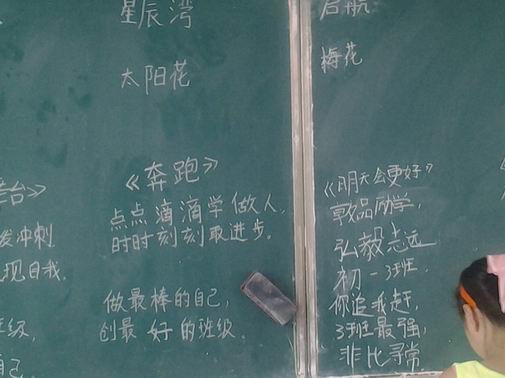 星辰湾
太阳花
《奔跑》
点点滴滴学做人，
时时刻刻取进步。
做最棒的自己，
创最好的班级。
启航
梅花
《明天会更好》
敦品励学，
弘毅志远
初一3班，
你追我赶，
3班最强，
非比寻常
台》
冲刺
现自我.
级，
自己